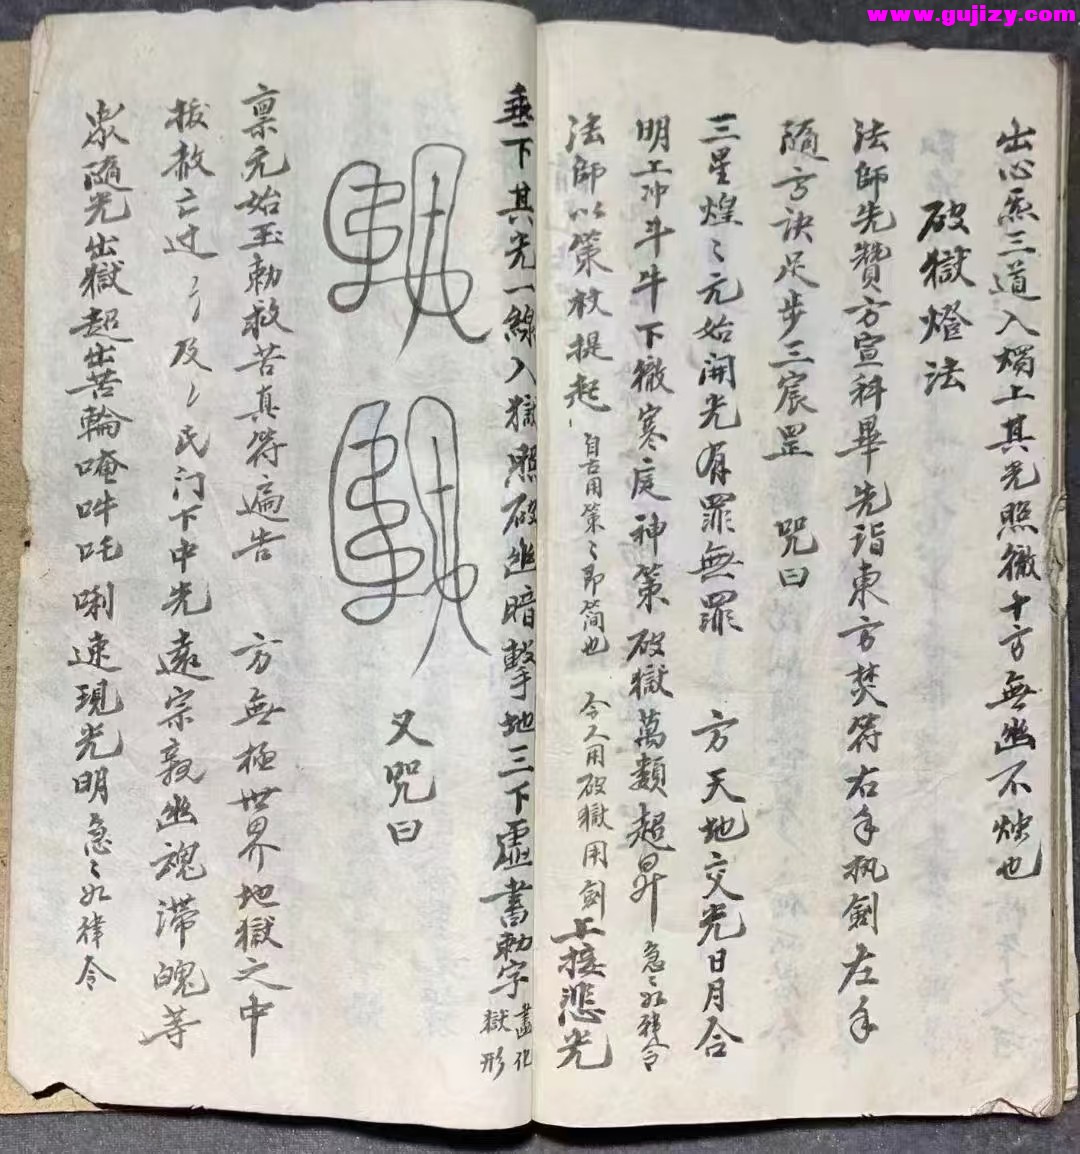 www.gujizy.com
出心炁三道入燭上其光照徹十方無幽不燭也
破獄燈法
法師先贊方宣科畢先詣東方焚符右手执劍左手
隨方诀足步三宸罡 咒曰
三星煌〻元始開光有罪無罪 方天地交光日月合
明上冲斗牛下徹寒庭神策破獄萬類超昇急〻如律令
法師以策杖提起自古用策〻即简也 今人用破獄用劍上接悲光
垂下其光一線入獄照破幽暗擊地三下虛書勅字畫化獄形
又咒曰
禀元始玉勅救苦真符遍告 方無極世界地獄之中
拔赦亡过〻亍及〻氏门下中光遠宗親幽魂滯魄等
眾隨光出獄超出苦輪唵吽吒唎速現光明急〻如律令